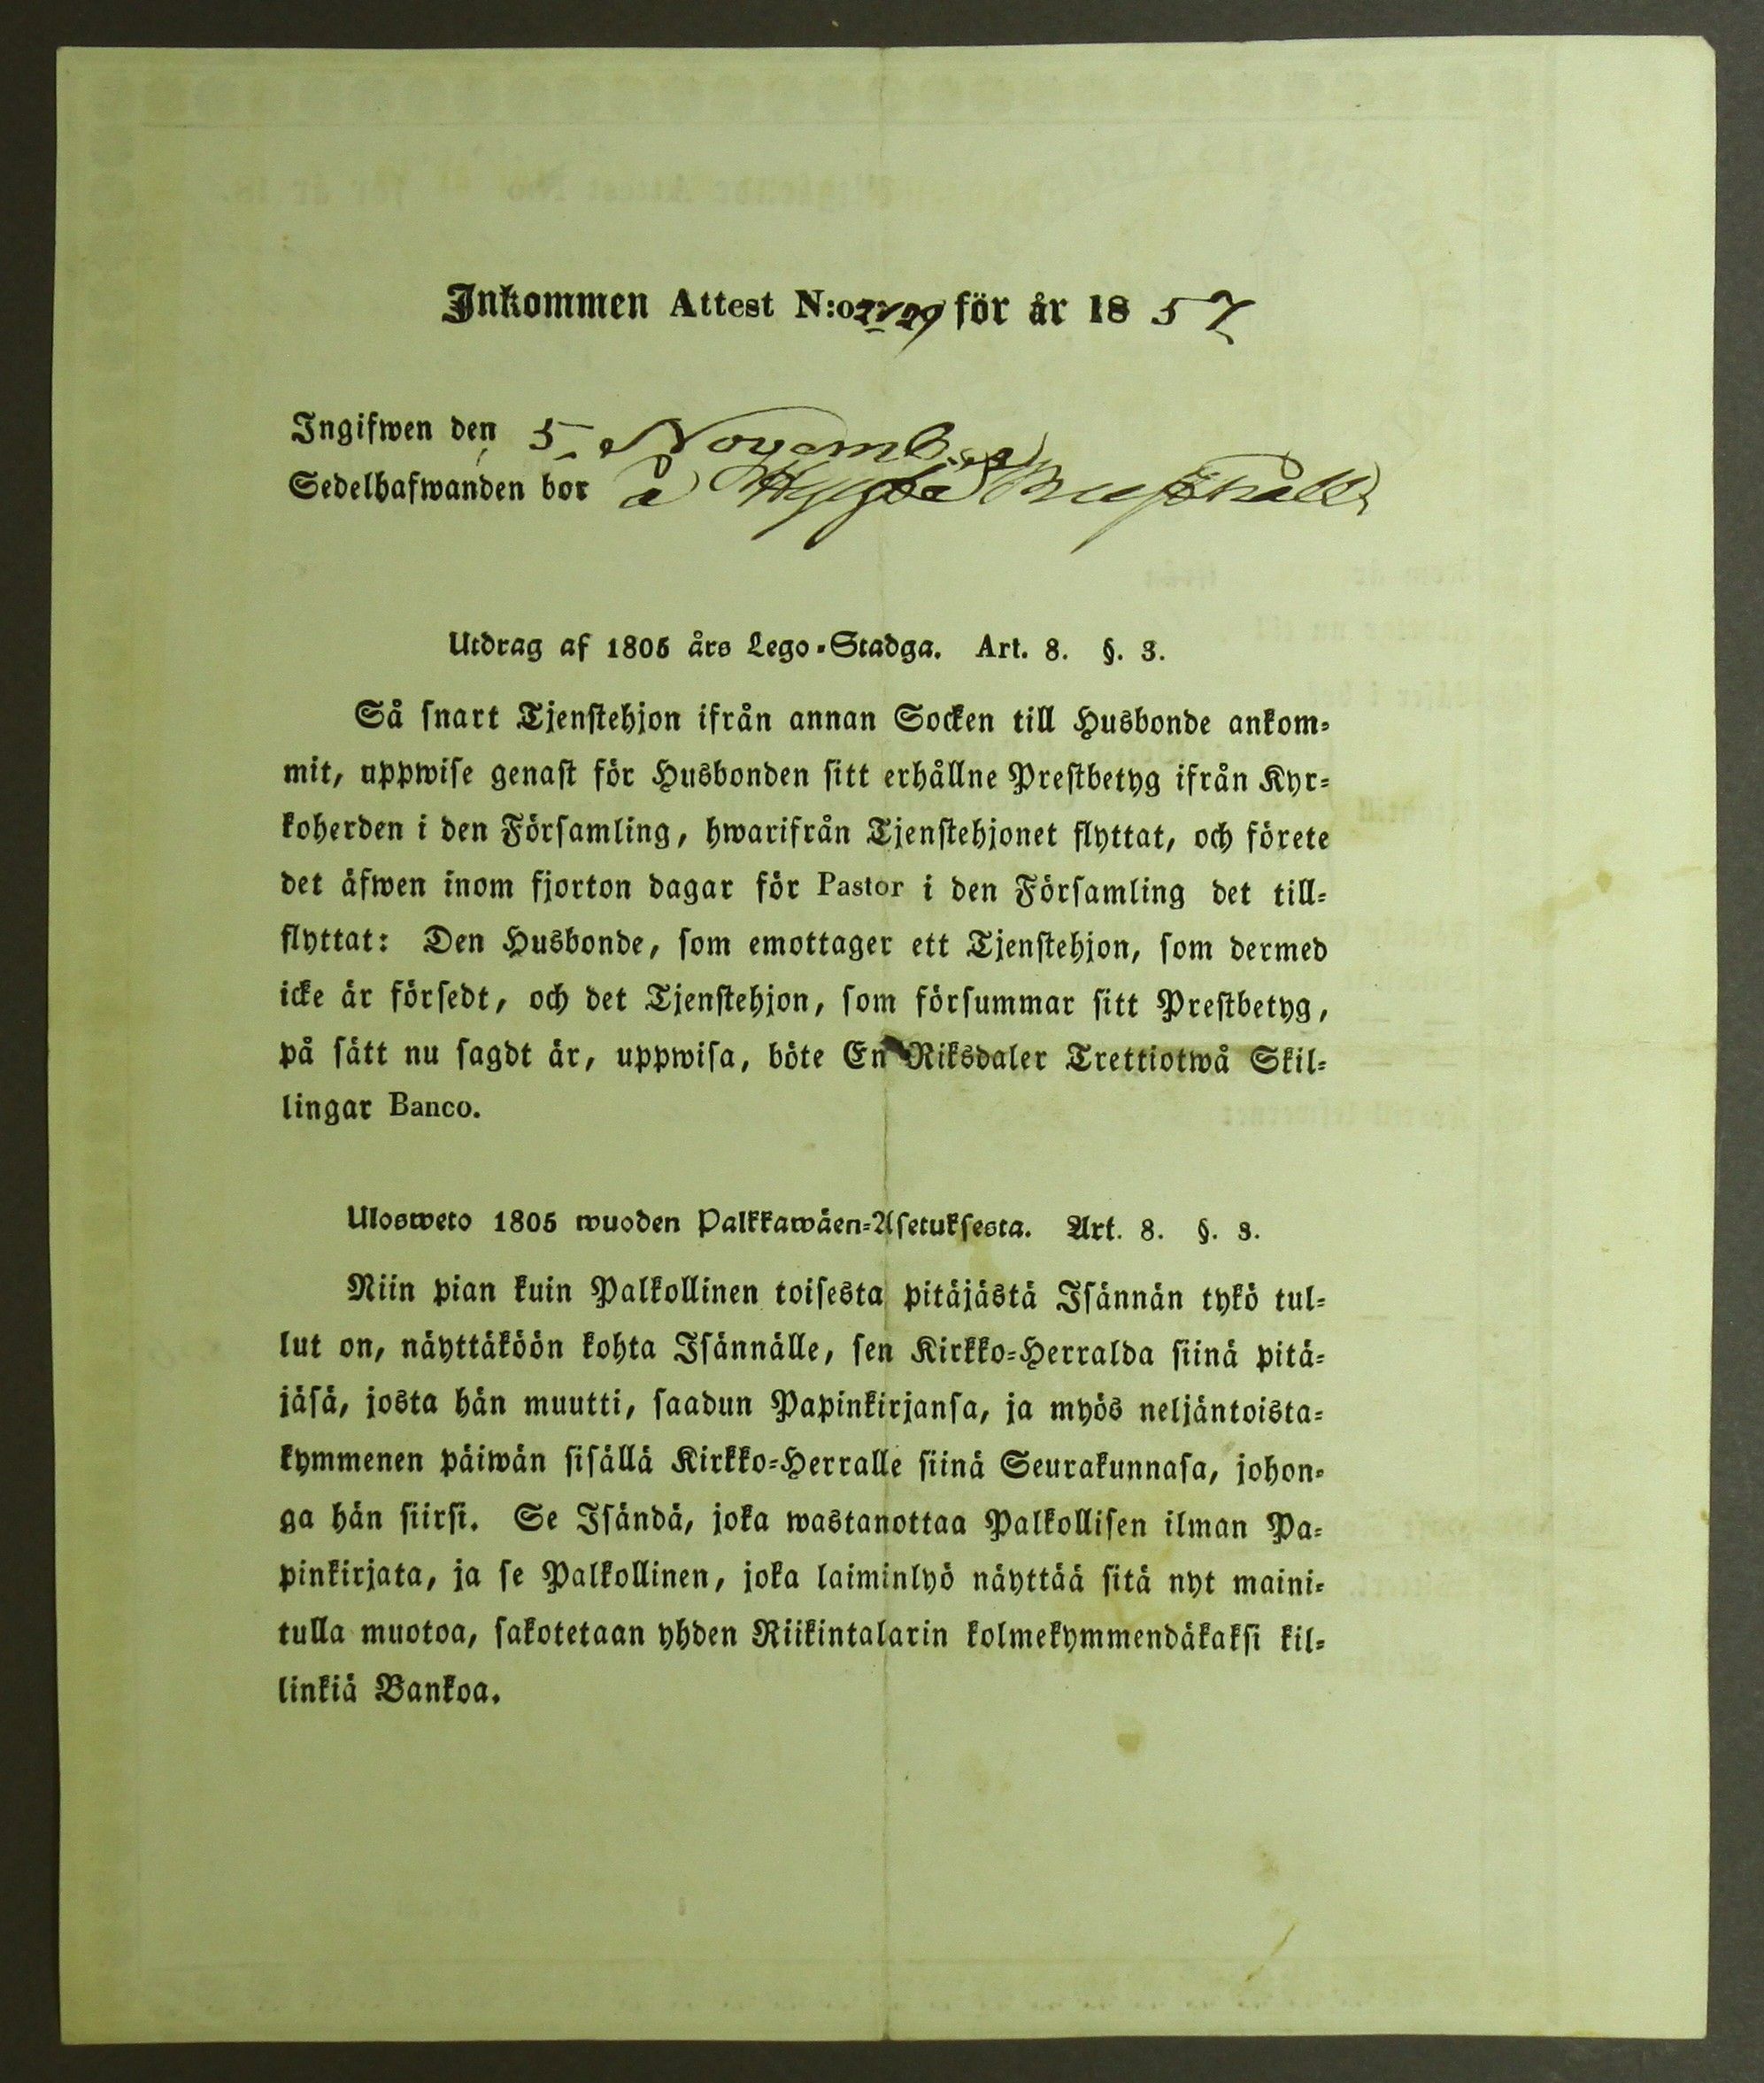 Inkommen Attest N:o för år 1857
Ingifwen den 5 November
Sedelhafwanden bor å
Utdrag af 1805 års Lego-Stadga. Art. 8. §. 3.
Så snart Tjenstehjon ifrån annan Socken till Husbonde ankom-
mit, uppwise genast för Husbonden sitt erhållne Prestbetyg ifrån Kyr-
koherden i den Församling, hwarifrån Tjenstehjonet flyttat, och förete
det äfwen inom fjorton dagar för Pastor i den Församling det till-
flyttat: Den Husbonde, som emottager ett Tjenstehjon, som dermed
icke är försedt, och det Tjenstehjon, som försummar sitt Prestbetyg,
på sätt nu sagdt är, uppwisa, böte En Riksdaler Trettiotwå Skil-
lingar Banco.
Ulosweto 1805 wuoden Palkkawäen-Asetuksesta. Art. 8. §. 3.
Niin pian kuin Palkollinen toisesta pitäjästä Isännän tykö tul-
lut on, näyttäköön kohta Isännälle, sen Kirkko-Herralda siinä pitä-
jäsä, josta hän muutti, saadun Papinkirjansa, ja myös neljäntoista-
kymmenen päiwän sisällä Kirkko-Herralle siinä Seurakunnasa, johon-
ga hän siirsi. Se Isändä, joka wastanottaa Palkollisen ilman Pa-
pinkirjata, ja se Palkollinen, joka laiminlyö näyttää sitä nyt maini-
tulla muotoa, sakotetaan yhden Riikintalarin kolmekymmendäkaksi kil-
linkiä Bankoa.